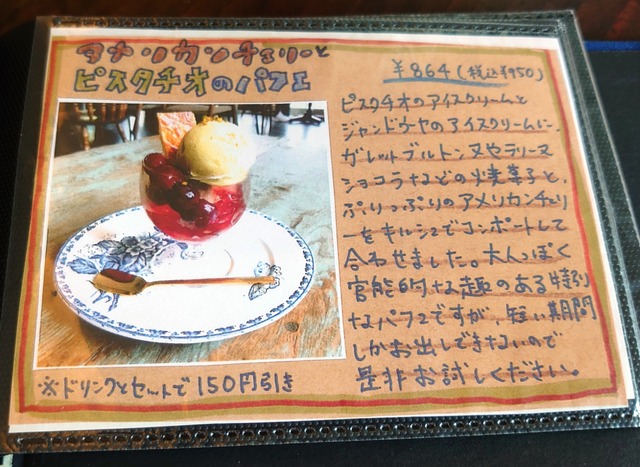 アメリカンチェリーと
ピスタチオのパフェ
¥864(税込¥950)
ピスタチオのアイスクリームと
ジャンドゥーヤのアイスクリームに、
ガレットブルトンヌやテリーヌ
ショコラなどの焼菓子と、
ぷりっぷりのアメリカンチェリ
ーをキルシュでコンポートして
合わせました。大人っぽく
官能的な趣のある特別
なパフェですが、短い期間
しかお出しできないので
是非お試しください。
※ドリンクとセットで150円引き